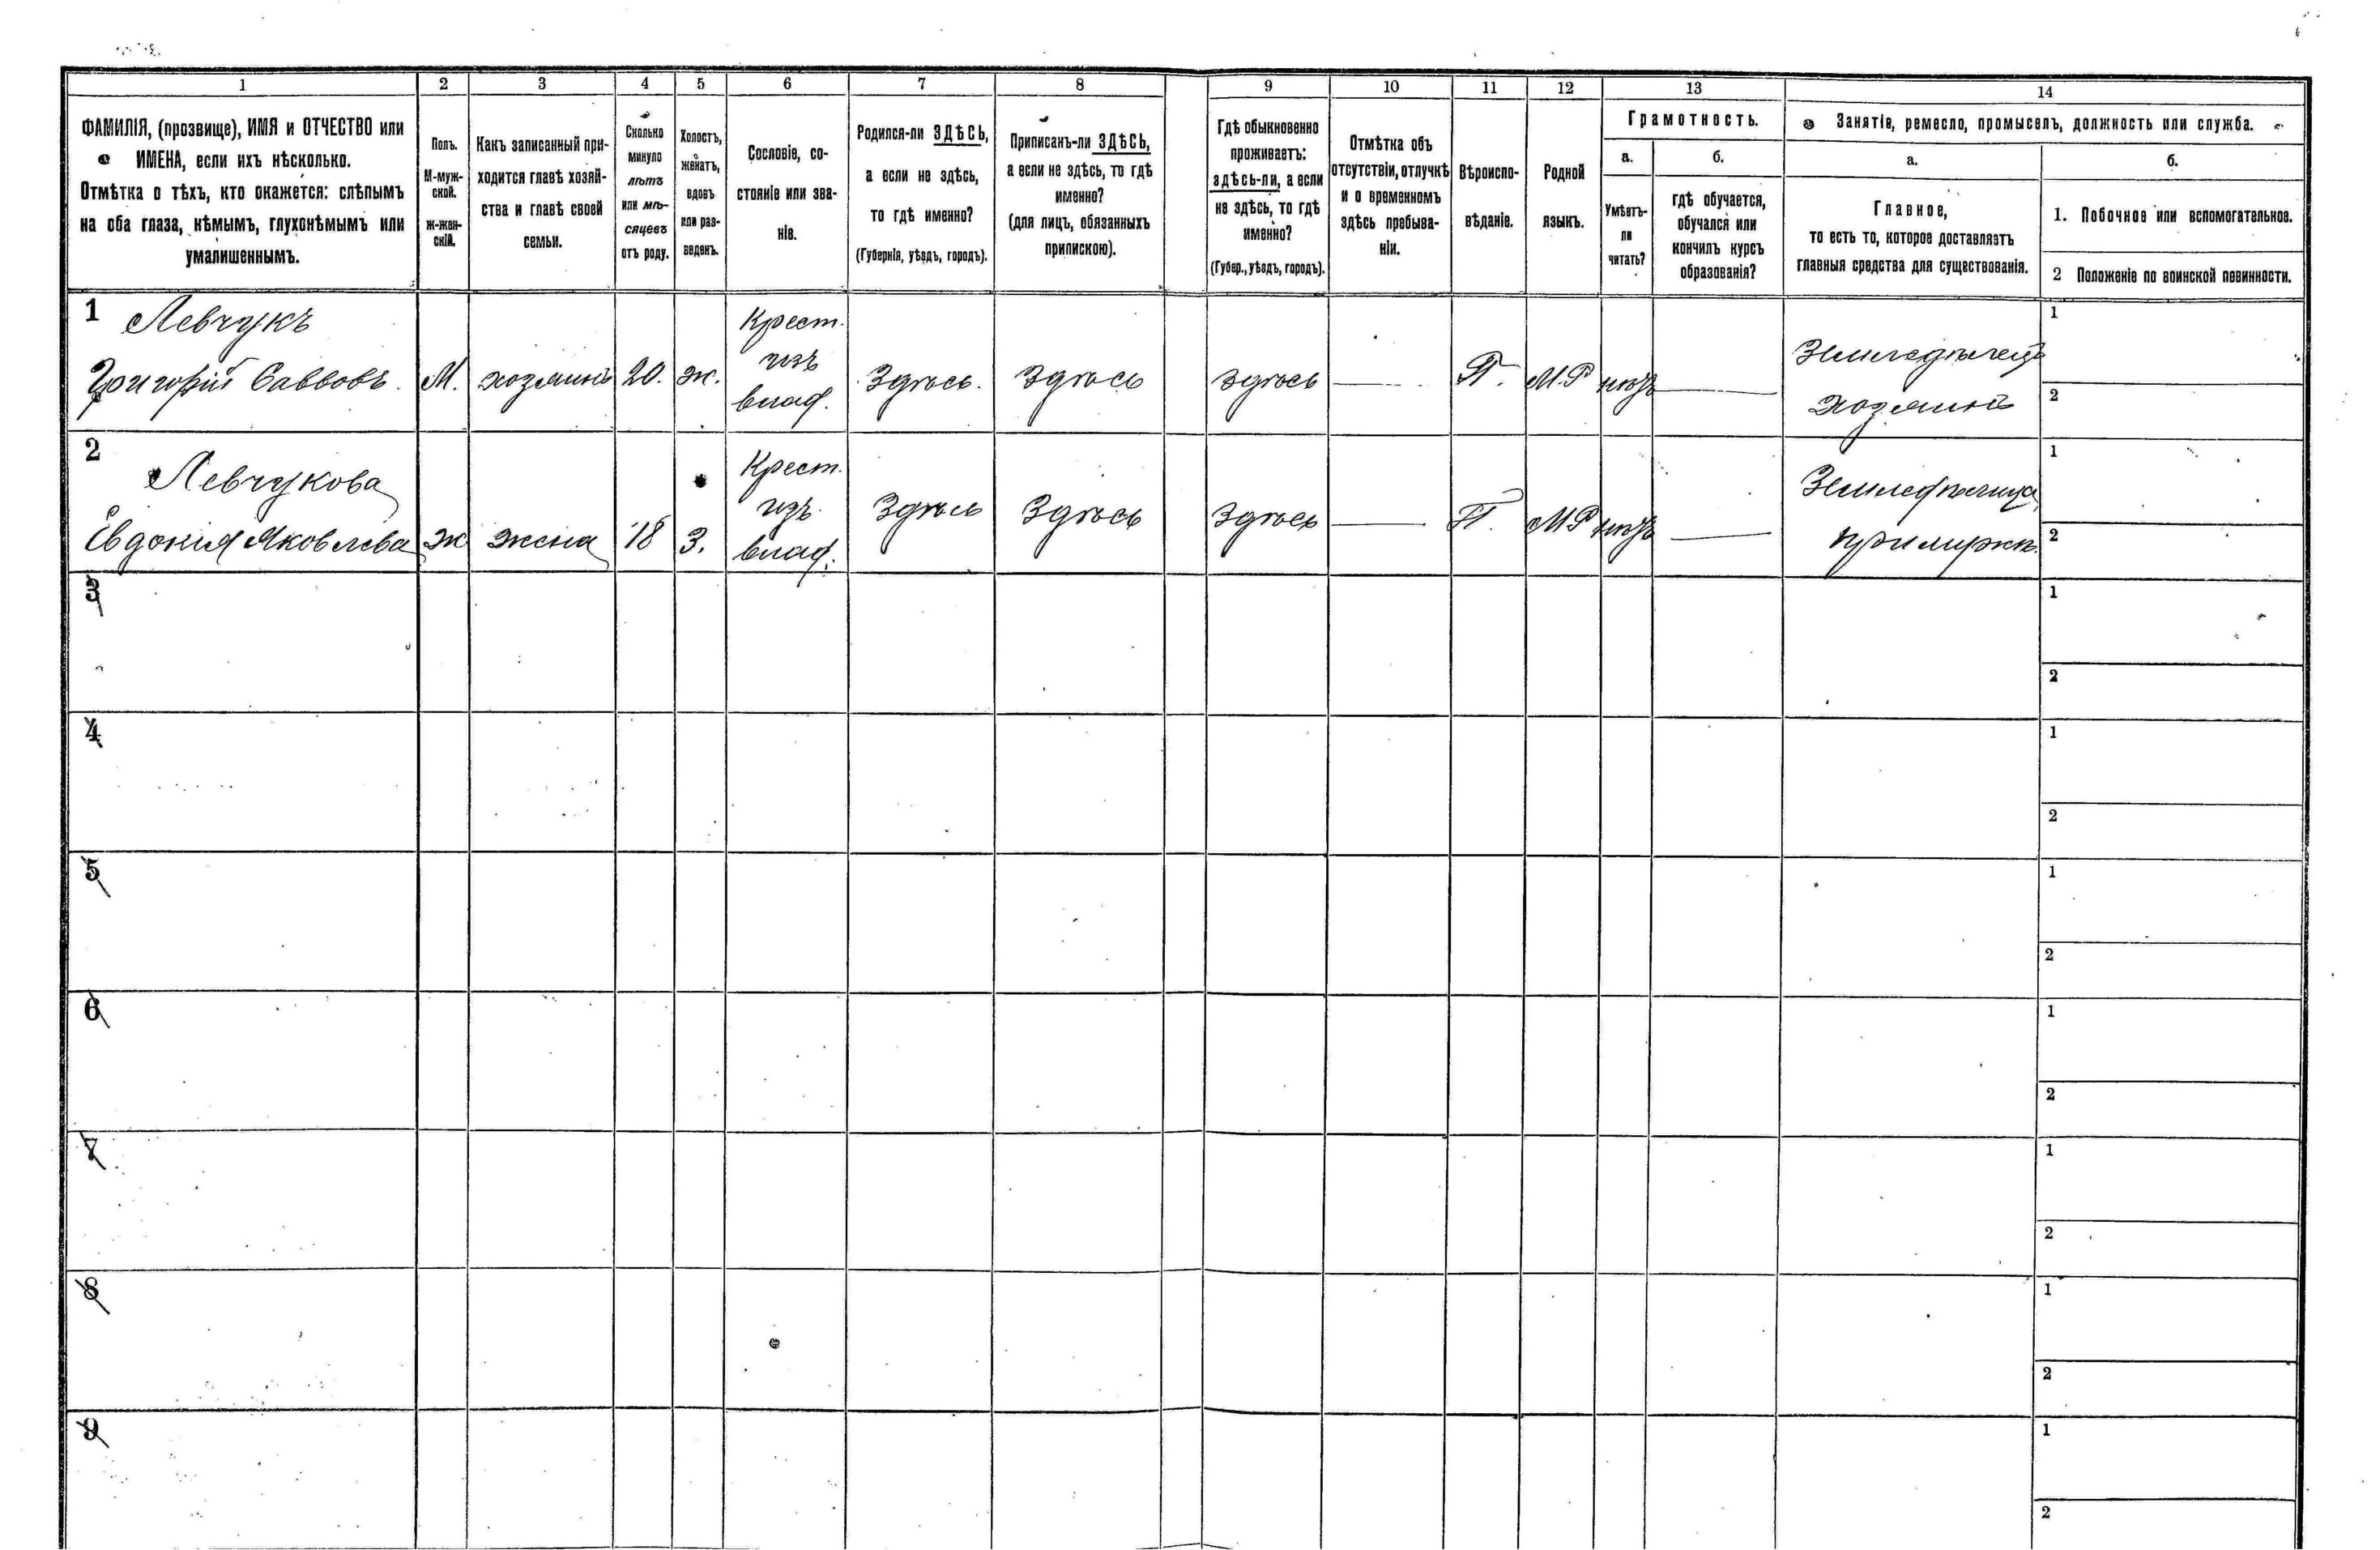 1 2 3 4 5 6 7 8 9 10 11 12 13 14
ФАМИЛІЯ, (прозвище), ИМЯ и ОТЧЕСТВО или
ИМЕНА, если ихъ нѣсколько.
Отмѣтка о тѣхъ, кто окажется: слѣпымъ
на оба глаза, нѣмымъ, глухонѣмымъ или
умалишеннымъ.
Полъ.
М-муж-
ской.
Ж-жен-
скій.
Какъ записанный при-
ходится главѣ хозяй-
ства и главѣ своей
семьи.
Сколько
минуло
лѣтъ
или мѣ-
сяцевъ
отъ роду.
Холостъ,
женатъ,
вдовъ
или раз-
веденъ.
Сословіе, со-
стояніе или зва-
ніе.
Родился-ли ЗДѢСЬ,
а если не здѣсь,
то гдѣ именно?
(Губернія, уѣздъ, городъ).
Приписанъ-ли ЗДѢСЬ,
а если не здѣсь, то гдѣ
именно?
(для лицъ, обязанныхъ
припискою).
Гдѣ обыкновенно
проживаетъ:
здѣсь-ли, а если
не здѣсь, то гдѣ
именно?
(Губер., уѣздъ, городъ).
Отмѣтка объ
отсутствіи, отлучкѣ
и о временномъ
здѣсь пребыва-
ніи.
Вѣроиспо-
вѣданіе.
Родной
языкъ.
Грамотность.
а.
Умѣетъ-
ли
читать?
б.
гдѣ обучается,
обучался или
кончилъ курсъ
образованія?
Занятіе, ремесло, промыселъ, должность или служба.
а.
Главное,
то есть то, которое доставляетъ
главныя средства для существованія.
б.
1. Побочное или вспомогательное.
2 Положеніе по воинской повинности.
1 Левчукъ
Григорій Саввовъ. М. хозяинъ 20. ж. Крест. изъ влад. Здѣсь. Здѣсь Здѣсь — П. М.Р нѣтъ — Земледѣлецъ хозяинъ 1 2
2 Левчукова
Евдокія Яковлева ж жена 18 З. Крест. изъ влад. Здѣсь Здѣсь Здѣсь — П. МР нѣтъ — Земледѣлица при мужѣ. 1 2
3 1 2
4 1 2
5 1 2
6 1 2
7 1 2
8 1 2
9 1 2